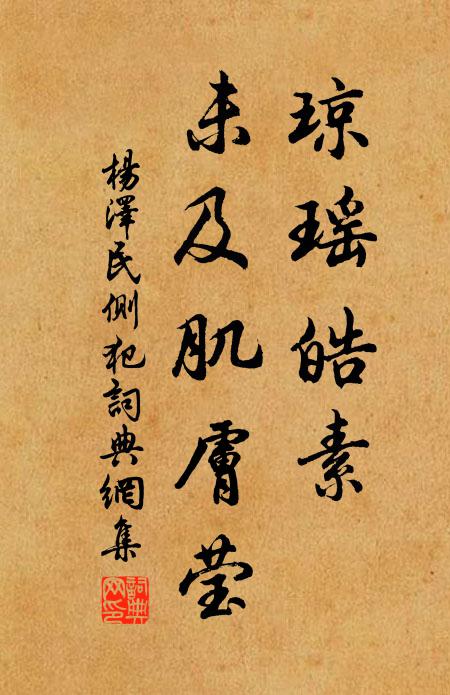 琼瑶皓素
未及肌膚莹
楊澤民侧犯詞典網集
詞典
网印